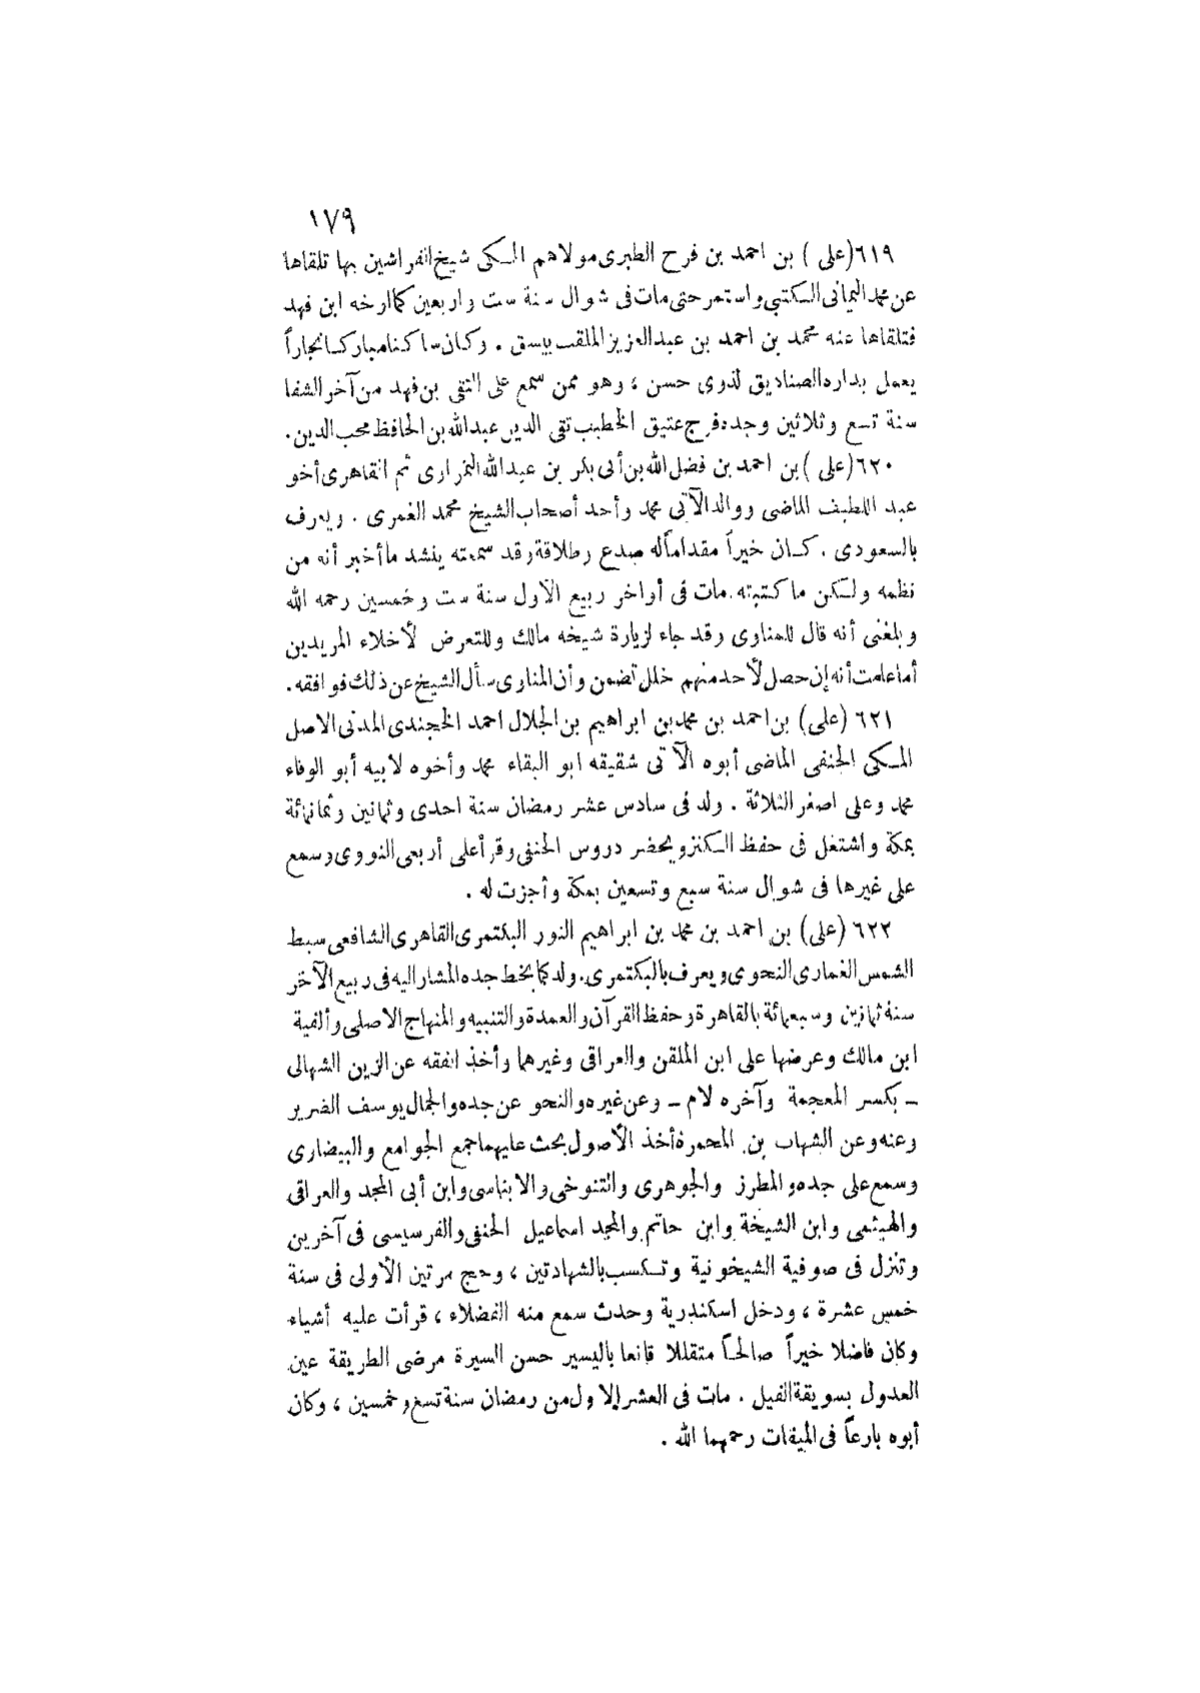 ١٧٩
٦١٩(على) بن احمد بن فرح الطبرى مولاهم المكى شيخ الفراشين بها تلقاها
عن محمد اليمانى الكتبى واستمر حتى مات فى شوال سنة ست واربعين كما ارخه ابن فهد
فتلقاها عنه محمد بن احمد بن عبدالعزيز الملقب بيسق . وكان ساكنا مباركا نجاراً
يعمل بداره الصناديق لذوى حسن ، وهو ممن سمع على التقى بن فهد من آخر الشفا
سنة تسع وثلاثين وجده فرج عتيق الخطيب تقى الدين عبدالله بن الحافظ محب الدين.
٦٢٠(على) بن احمد بن فضل الله بن أبى بكر بن عبدالله النمراوى ثم القاهرى أخو
عبد اللطيف الماضى ووالد الآتى محمد وأحد أصحاب الشيخ محمد الغمرى . ويعرف
بالسعودى . كان خيراً مقداماً له صدع وطلاقة وقد سمعته ينشد ما أخبر أنه من
نظمه ولكن ما كتبته. مات فى أواخر ربيع الاول سنة ست وخمسين رحمه الله
وبلغنى أنه قال للمناوى وقد جاء لزيارة شيخه مالك وللتعرض لأخلاء المريدين
أما علمت أنه إن حصل لأحد منهم خلل تضمن وأن المناوى سأل الشيخ عن ذلك فوافقه.
٦٢١ (على) بن احمد بن محمد بن ابراهيم بن الجلال احمد الخجندى المدنى الاصل
المكى الحنفى الماضى أبوه الآتى شقيقه ابو البقاء محمد وأخوه لابيه أبو الوفاء
محمد وعلى اصغر الثلاثة . ولد فى سادس عشر رمضان سنة احدى وثمانين وثمانمائة
بمكة واشتغل فى حفظ الكنز ويحضر دروس الحنفى وقرأ على أربعى النووى وسمع
على غيرها فى شوال سنة سبع وتسعين بمكة وأجزت له .
٦٢٢ (على) بن احمد بن محمد بن ابراهيم النور البكتمرى القاهرى الشافعى سبط
الشمس الغمارى النحوى ويعرف بالبكتمرى. ولد كما بخط جده المشار اليه فى ربيع الآخر
سنة ثمانين وسبعمائة بالقاهرة وحفظ القرآن والعمدة والتنبيه والمنهاج الاصلى وألفية
ابن مالك وعرضها على ابن الملقن والعراقى وغيرهما وأخذ الفقه عن الزين الشهالى
ـ بكسر المعجمة وآخره لام ـ وعن غيره والنحو عن جده والجمال يوسف الضرير
وعنه وعن الشهاب بن المحمرة أخذ الأصول بحث عليهما جمع الجوامع والبيضاوى
وسمع على جده والمطرز والجوهرى والتنوخى والابناسى وابن أبى المجد والعراقى
والهيثمى وابن الشيخة وابن حاتم والمجد اسماعيل الحنفى والفرسيسى فى آخرين
وتنزل فى صوفية الشيخونية وتكسب بالشهادتين ، وحج مرتين الأولى فى سنة
خمس عشرة ، ودخل اسكندرية وحدث سمع منه الفضلاء ، قرأت عليه أشياء
وكان فاضلا خيراً صالحاً متقللا قانعا باليسير حسن السيرة مرضى الطريقة عين
العدول بسويقة الفيل . مات فى العشر الاول من رمضان سنة تسع وخمسين ، وكان
أبوه بارعاً فى الميقات رحمهما الله .